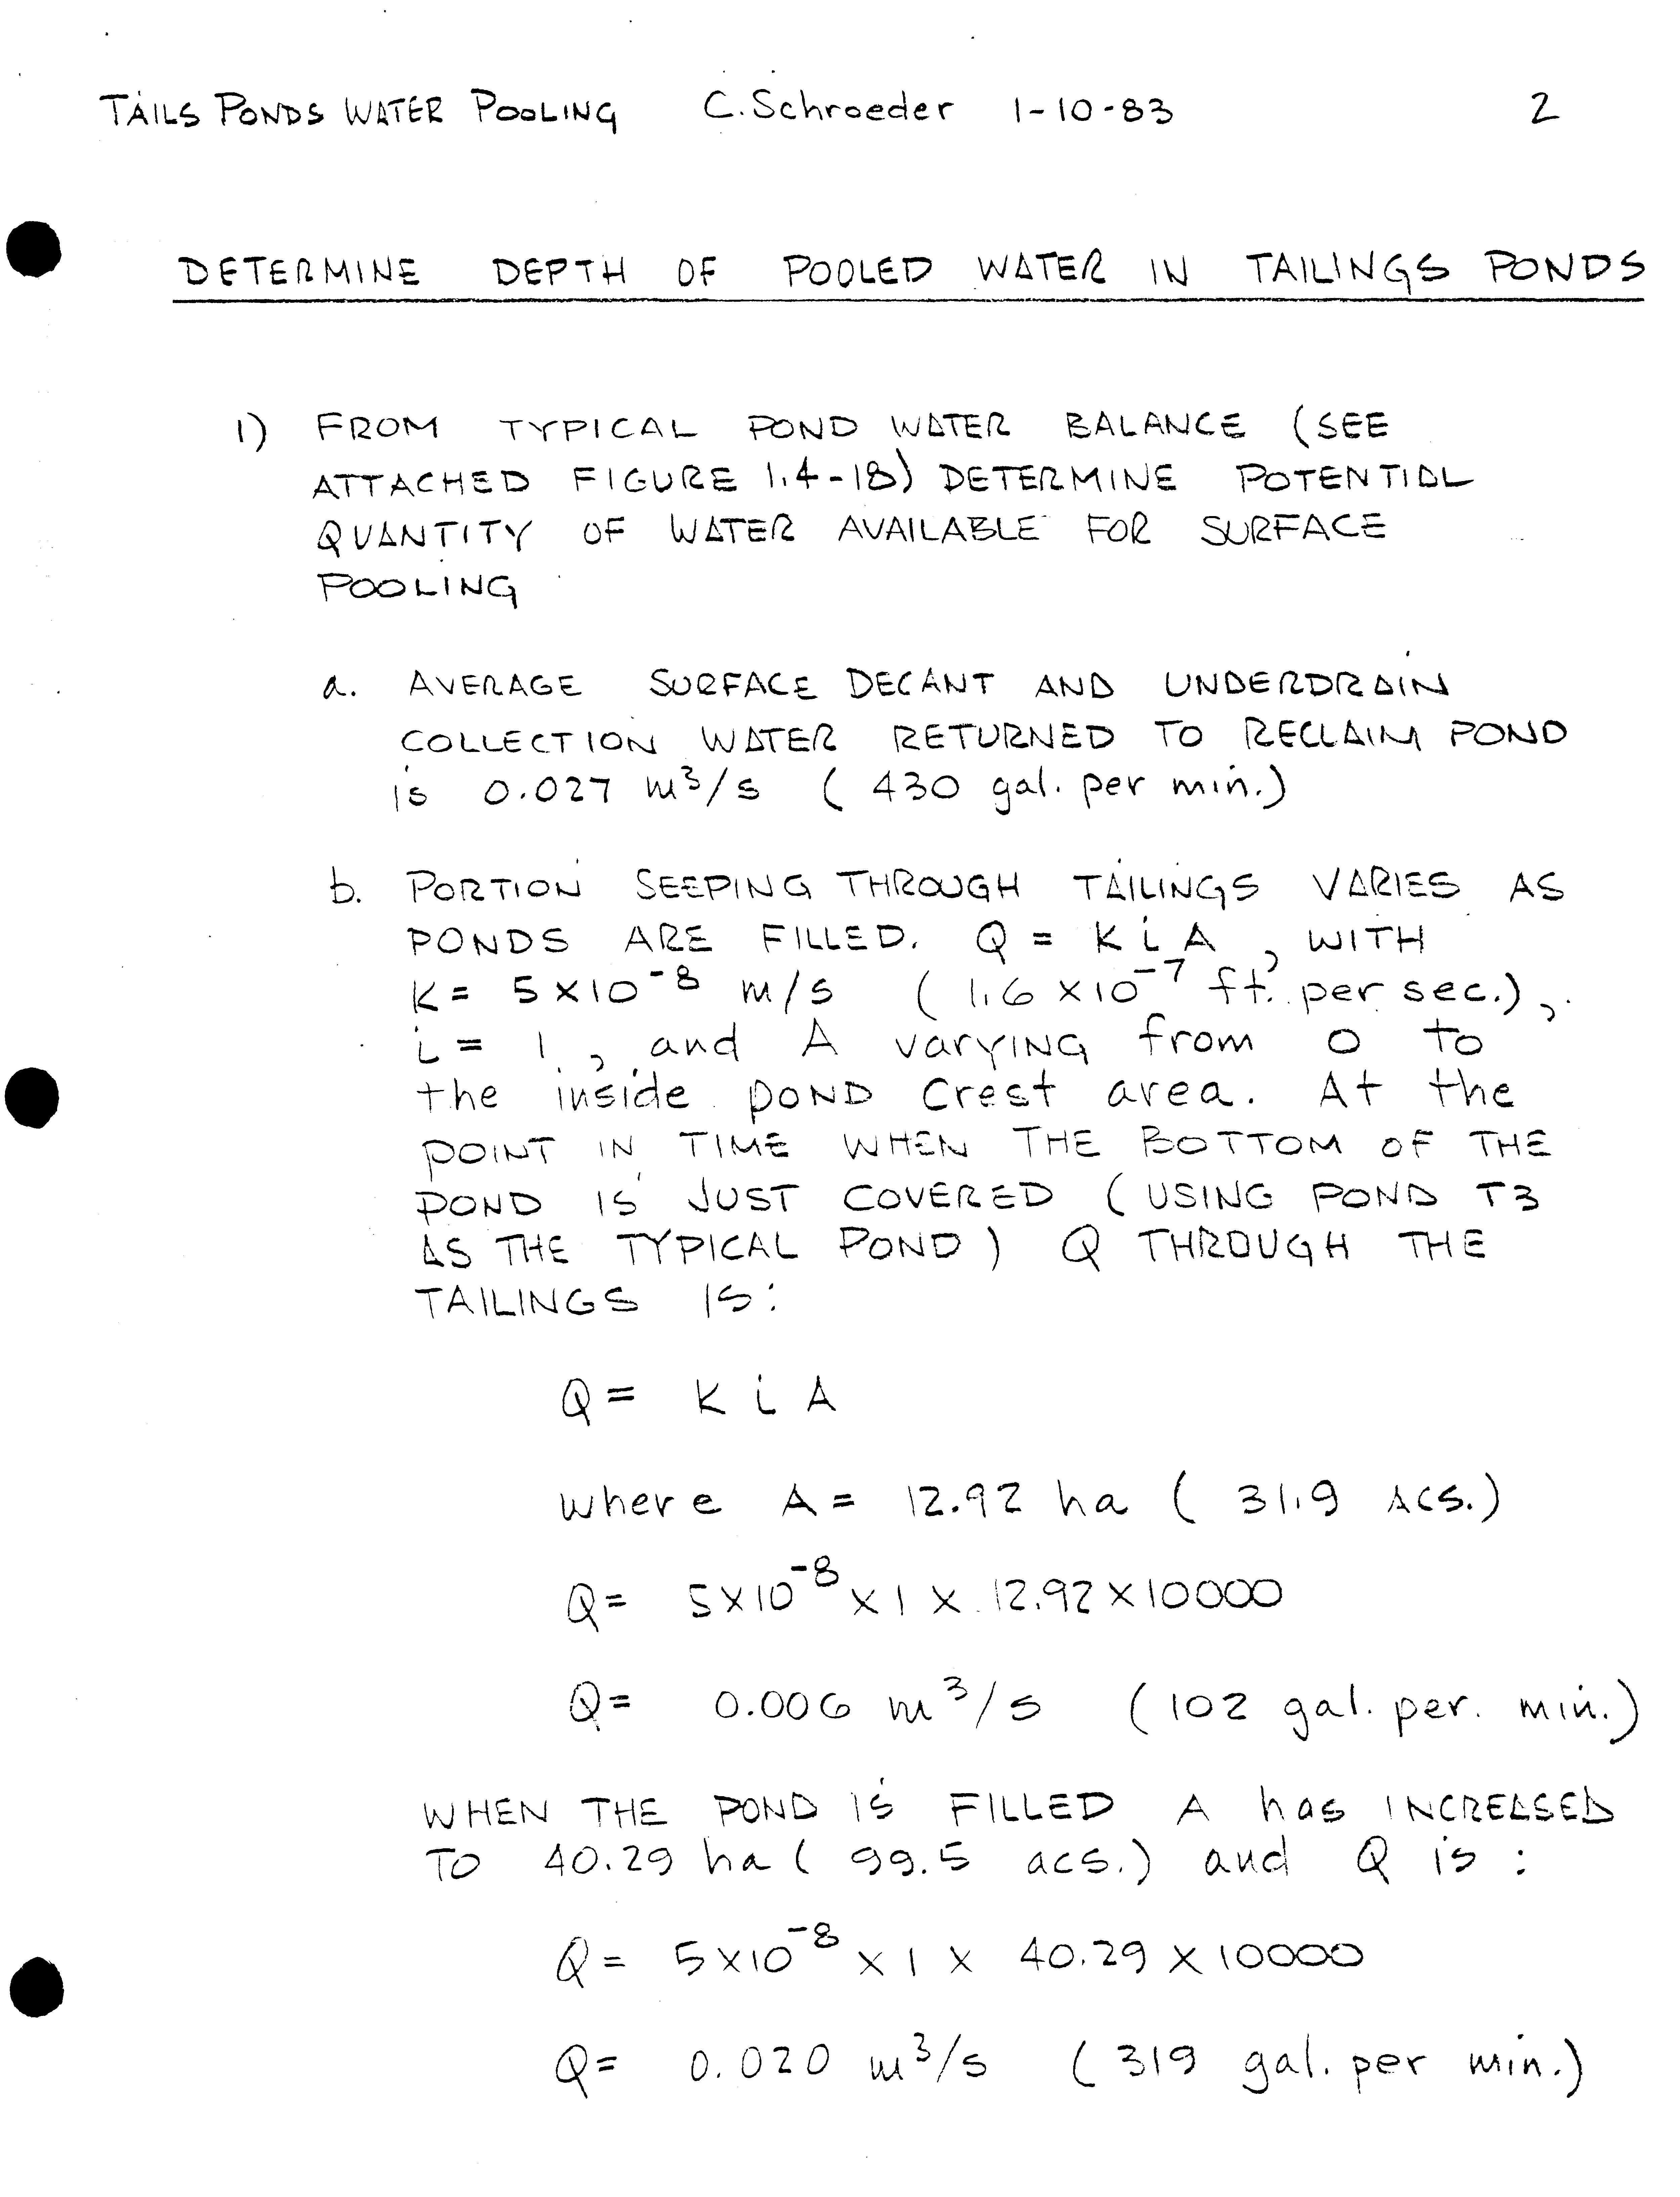 TAILS PONDS WATER POOLING C. Schroeder 1-10-83 2
DETERMINE DEPTH OF POOLED WATER IN TAILINGS PONDS
1) FROM TYPICAL POND WATER BALANCE (SEE
ATTACHED FIGURE 1.4-18) DETERMINE POTENTIAL
QUANTITY OF WATER AVAILABLE FOR SURFACE
POOLING
a. AVERAGE SURFACE DECANT AND UNDERDRAIN
COLLECTION WATER RETURNED TO RECLAIM POND
is 0.027 m³/s (430 gal. per min.)
b. PORTION SEEPING THROUGH TAILINGS VARIES AS
PONDS ARE FILLED. Q = K i A, WITH
K = 5×10⁻⁸ m/s (1.6×10⁻⁷ ft. per sec.),
i = 1, and A varyING from 0 to
the inside POND Crest area. At the
POINT IN TIME WHEN THE BOTTOM OF THE
POND IS JUST COVERED (USING POND T3
AS THE TYPICAL POND) Q THROUGH THE
TAILINGS IS:
Q = K i A
where A = 12.92 ha (31.9 ACS.)
Q = 5×10⁻⁸ × 1 × 12.92 × 10000
Q = 0.006 m³/s (102 gal. per. min.)
WHEN THE POND IS FILLED A has INCREASED
TO 40.29 ha (99.5 acs.) and Q is:
Q = 5×10⁻⁸ × 1 × 40.29 × 10000
Q = 0.020 m³/s (319 gal. per min.)